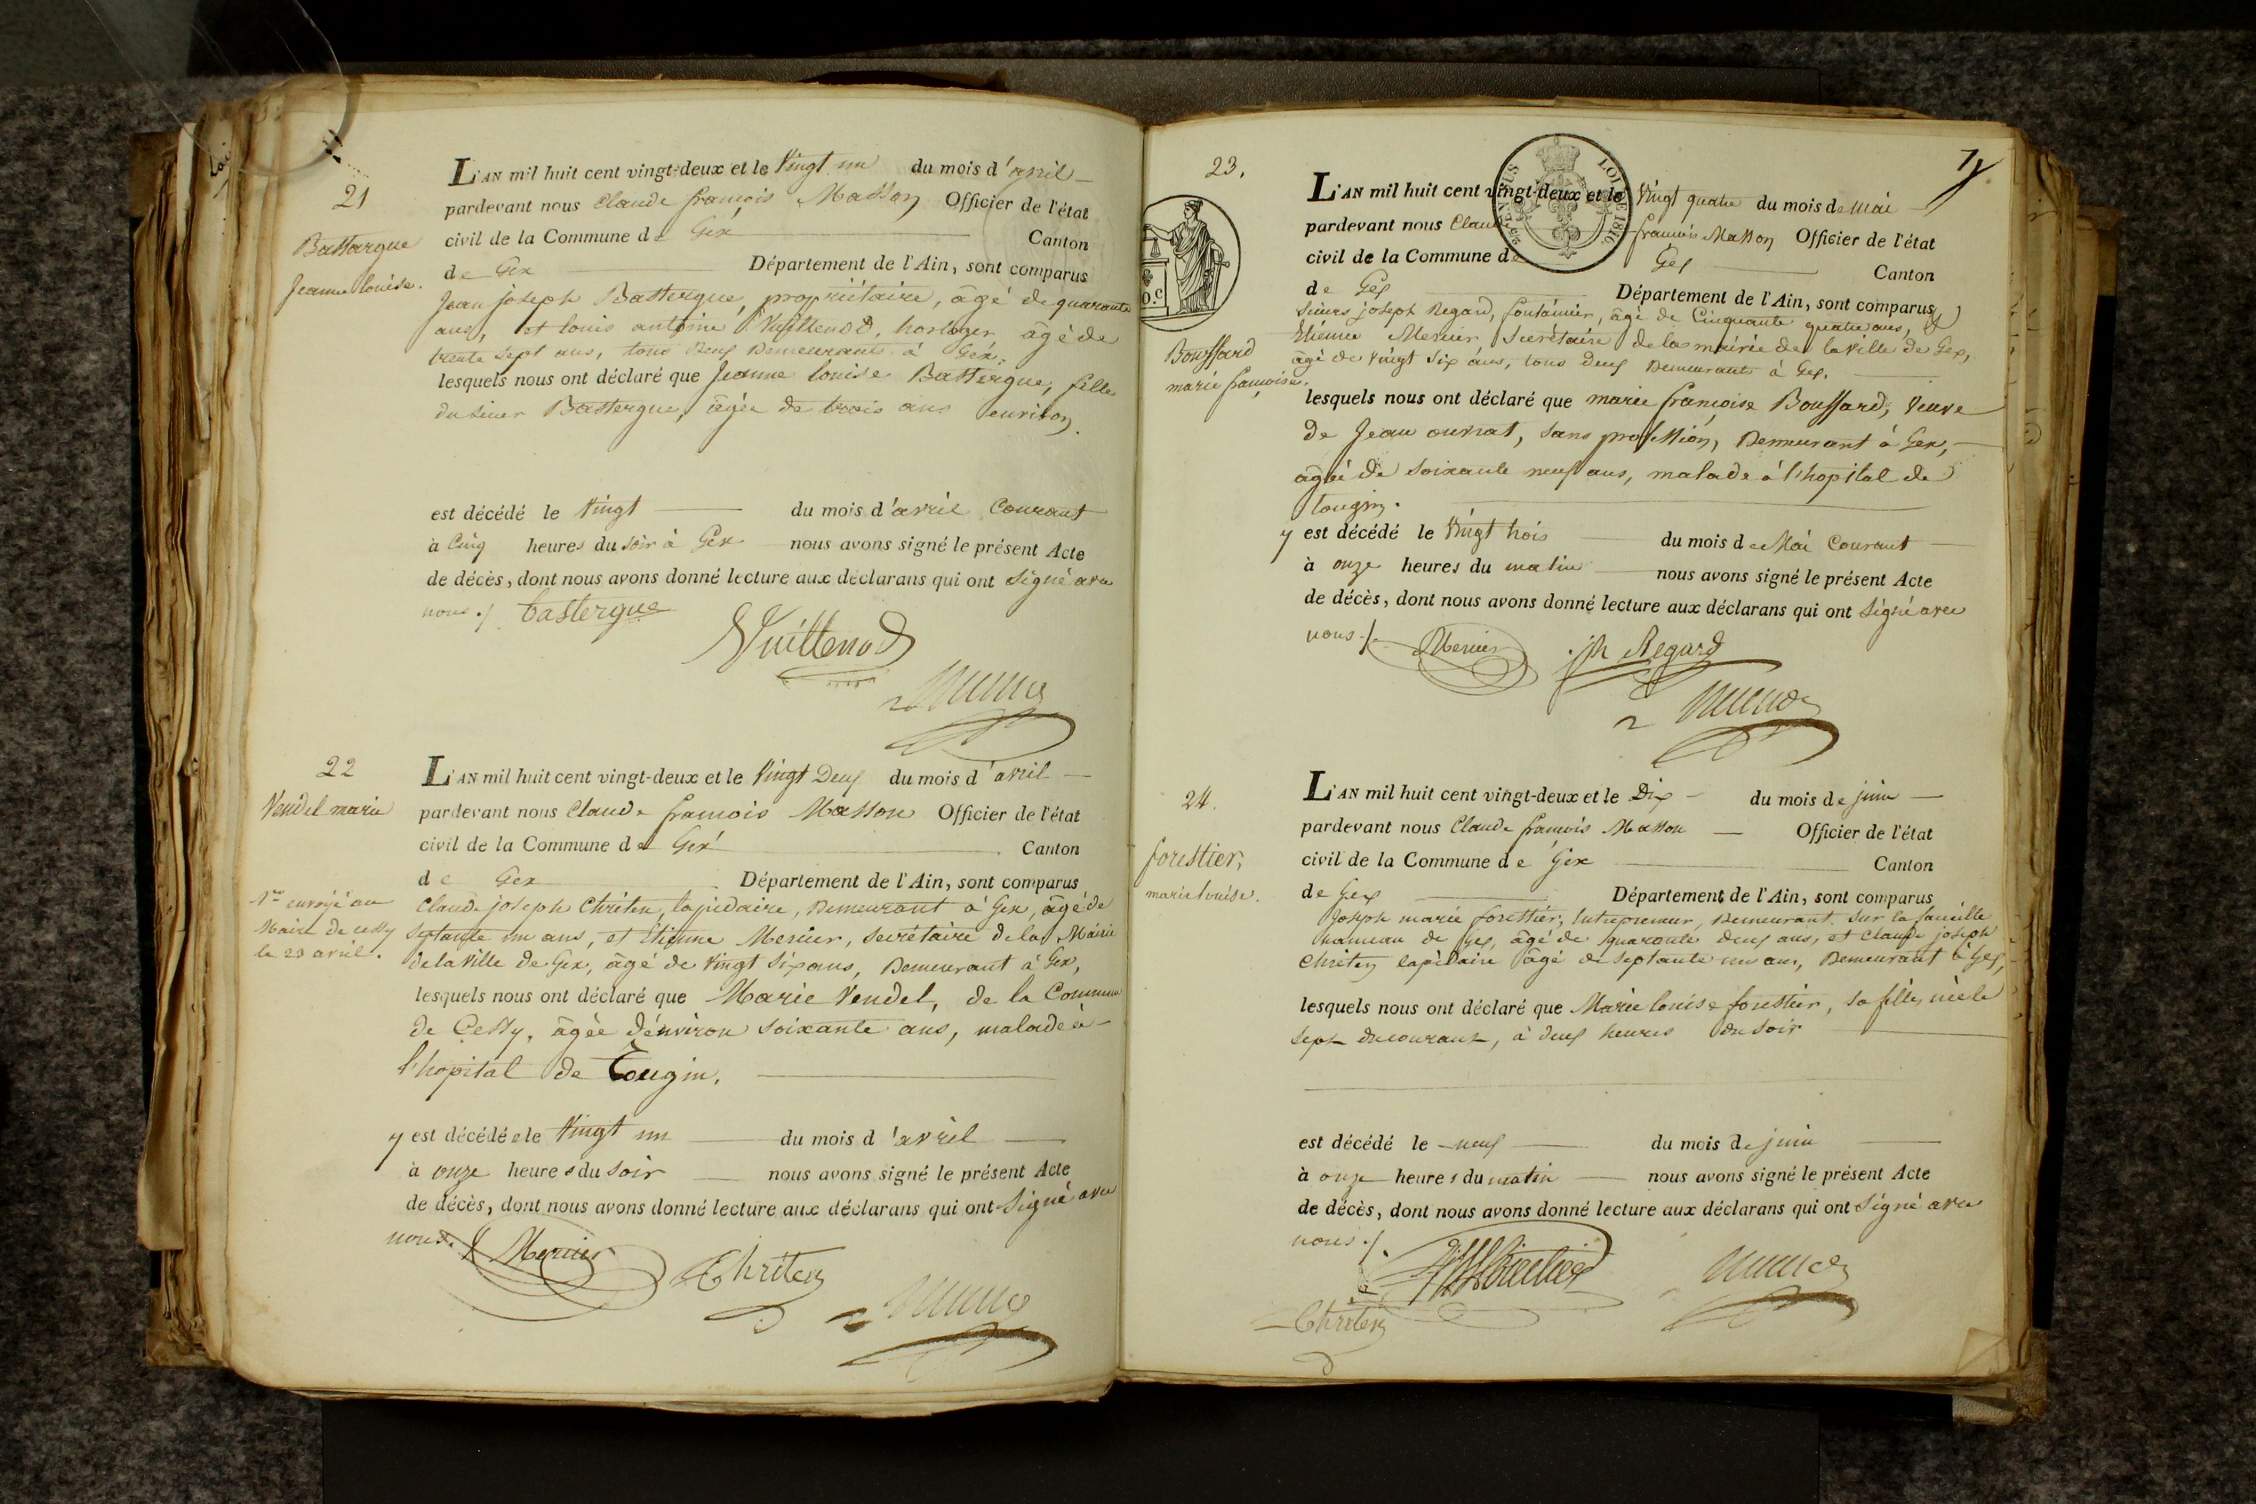 21
Bastargue
Jeanne louise.
L'AN mil huit cent vingt-deux et le Vingt un du mois d'avril
pardevant nous Claude françois Masson Officier de l'état
civil de la Commune de Gex Canton
de Gex Département de l'Ain, sont comparus
Jean joseph Bastergue, propriétaire, âgé de quarante
ans, et louis antoine Vuillenod, horloger âgé de
trente sept ans, tous deux Demeurants à Gex,
lesquels nous ont déclaré que Jeanne louise Bastergue, fille
du sieur Bastergue, âgée de trois ans environ.
est décédé le Vingt du mois d'avril Courant
à Cinq heures du soir à Gex nous avons signé le présent Acte
de décès, dont nous avons donné lecture aux déclarans qui ont signé avec
nous ./. bastergue
Vuillenod
22
Vendel marie
Maire de cessy
le 23 avril.
L'AN mil huit cent vingt-deux et le Vingt Deux du mois d'avril
pardevant nous Claude francois Masson Officier de l'état
civil de la Commune de Gex Canton
de Gex Département de l'Ain, sont comparus
Claude joseph Chriten, lapidaire, Demeurant à Gex, âgé de
septante un ans, et Etienne Mercier, secrétaire de la Mairie
de la Ville de Gex, âgé de Vingt six ans, Demeurant à Gex,
lesquels nous ont déclaré que Marie Vendel, de la Commune
de Cessy, âgée d'environ soixante ans, malade à
l'hopital de Tougin,
y est décédée le Vingt un du mois d'avril
à onze heures du soir nous avons signé le présent Acte
de décès, dont nous avons donné lecture aux déclarans qui ont signé avec
nous. Mercier
Chriten
7
23.
LOI DE 1816
Bouffard
marie françoise.
L'AN mil huit cent vingt-deux et le Vingt quatre du mois de Mai
pardevant nous Claude francois Masson Officier de l'état
civil de la Commune de Gex Canton
de Gex Département de l'Ain, sont comparus
Sieurs joseph Regard, fontainier, âgé de Cinquante quatre ans, et
Etienne Mercier Secrétaire de la mairie de la Ville de Gex,
âgé de vingt six ans, tous deux Demeurants à Gex.
lesquels nous ont déclaré que marie françoise Bouffard, Veuve
de Jean ouvrat, sans profession, Demeurant à Gex,
âgée de soixante neuf ans, malade à l'hopital de
tougin.
y est décédé le Vingt trois du mois de Mai Courant
à onze heures du matin nous avons signé le présent Acte
de décès, dont nous avons donné lecture aux déclarans qui ont signé avec
nous ./. Mercier jh Regard
24.
forestier,
marie louise.
L'AN mil huit cent vingt-deux et le Dix du mois de juin
pardevant nous Claude francois Masson Officier de l'état
civil de la Commune de Gex Canton
de Gex Département de l'Ain, sont comparus
Joseph marie forestier, Entrepreneur, Demeurant sur la faucille
hameau de Gex, âgé de quarante deux ans, et Claude joseph
Chriten lapidaire âgé de septante un ans, Demeurant à Gex,
lesquels nous ont déclaré que Marie louise forestier, sa fille, née le
sept du courant, à deux heures du soir
est décédé le neuf du mois de juin
à onze heures du matin nous avons signé le présent Acte
de décès, dont nous avons donné lecture aux déclarans qui ont signé avec
nous ./.
Chriten